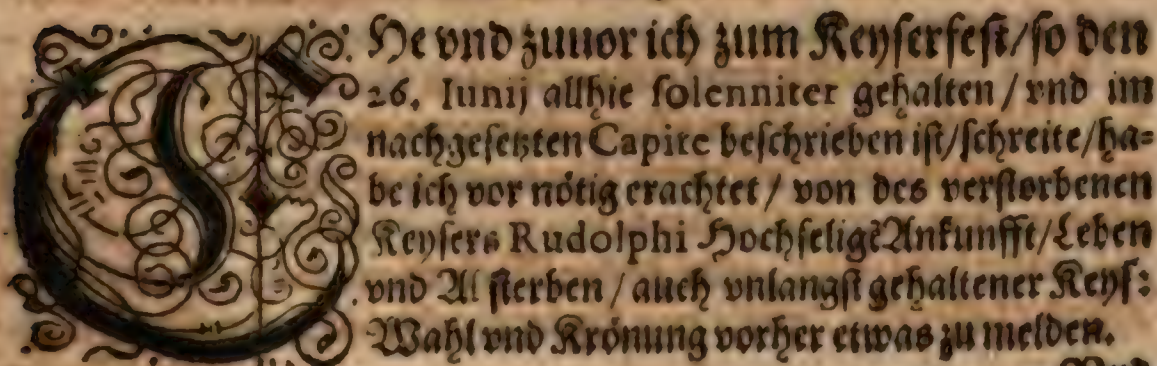 EHe vnd zuuor ich zum Keyserfest/so den
26. Iunij allhie solenniter gehalten/vnd im
nachgesetzten Capite beschrieben ist/schreite/ha=
be ich vor nötig erachtet/von des verstorbenen
Keysers Rudolphi Hochseligē Ankunfft/Leben
vnd Absterben/auch vnlangst gehaltener Keys:
Wahl vnd Krönung vorher etwas zu melden.